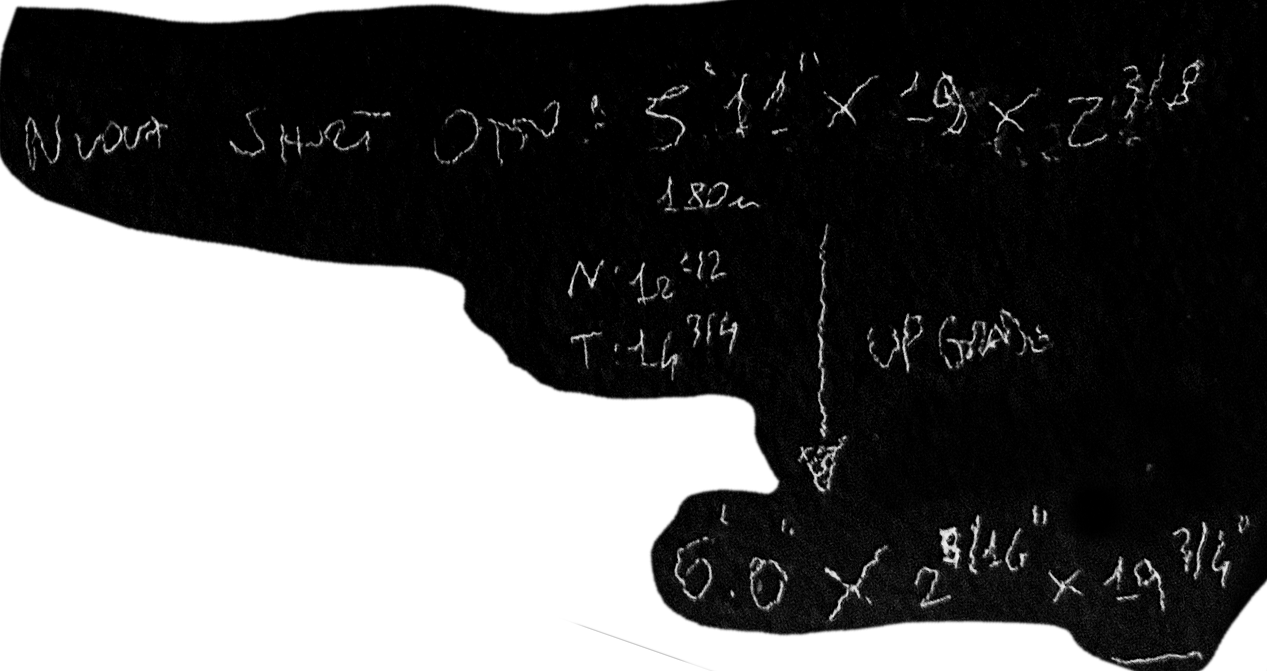 NUOVA SHORT OPTN: 5'11" X 19 X 2 3/8
180
N: 12 1/2
T: 14 3/4
UPGRADE
6'.0" X 2 5/16" X 19 3/4"